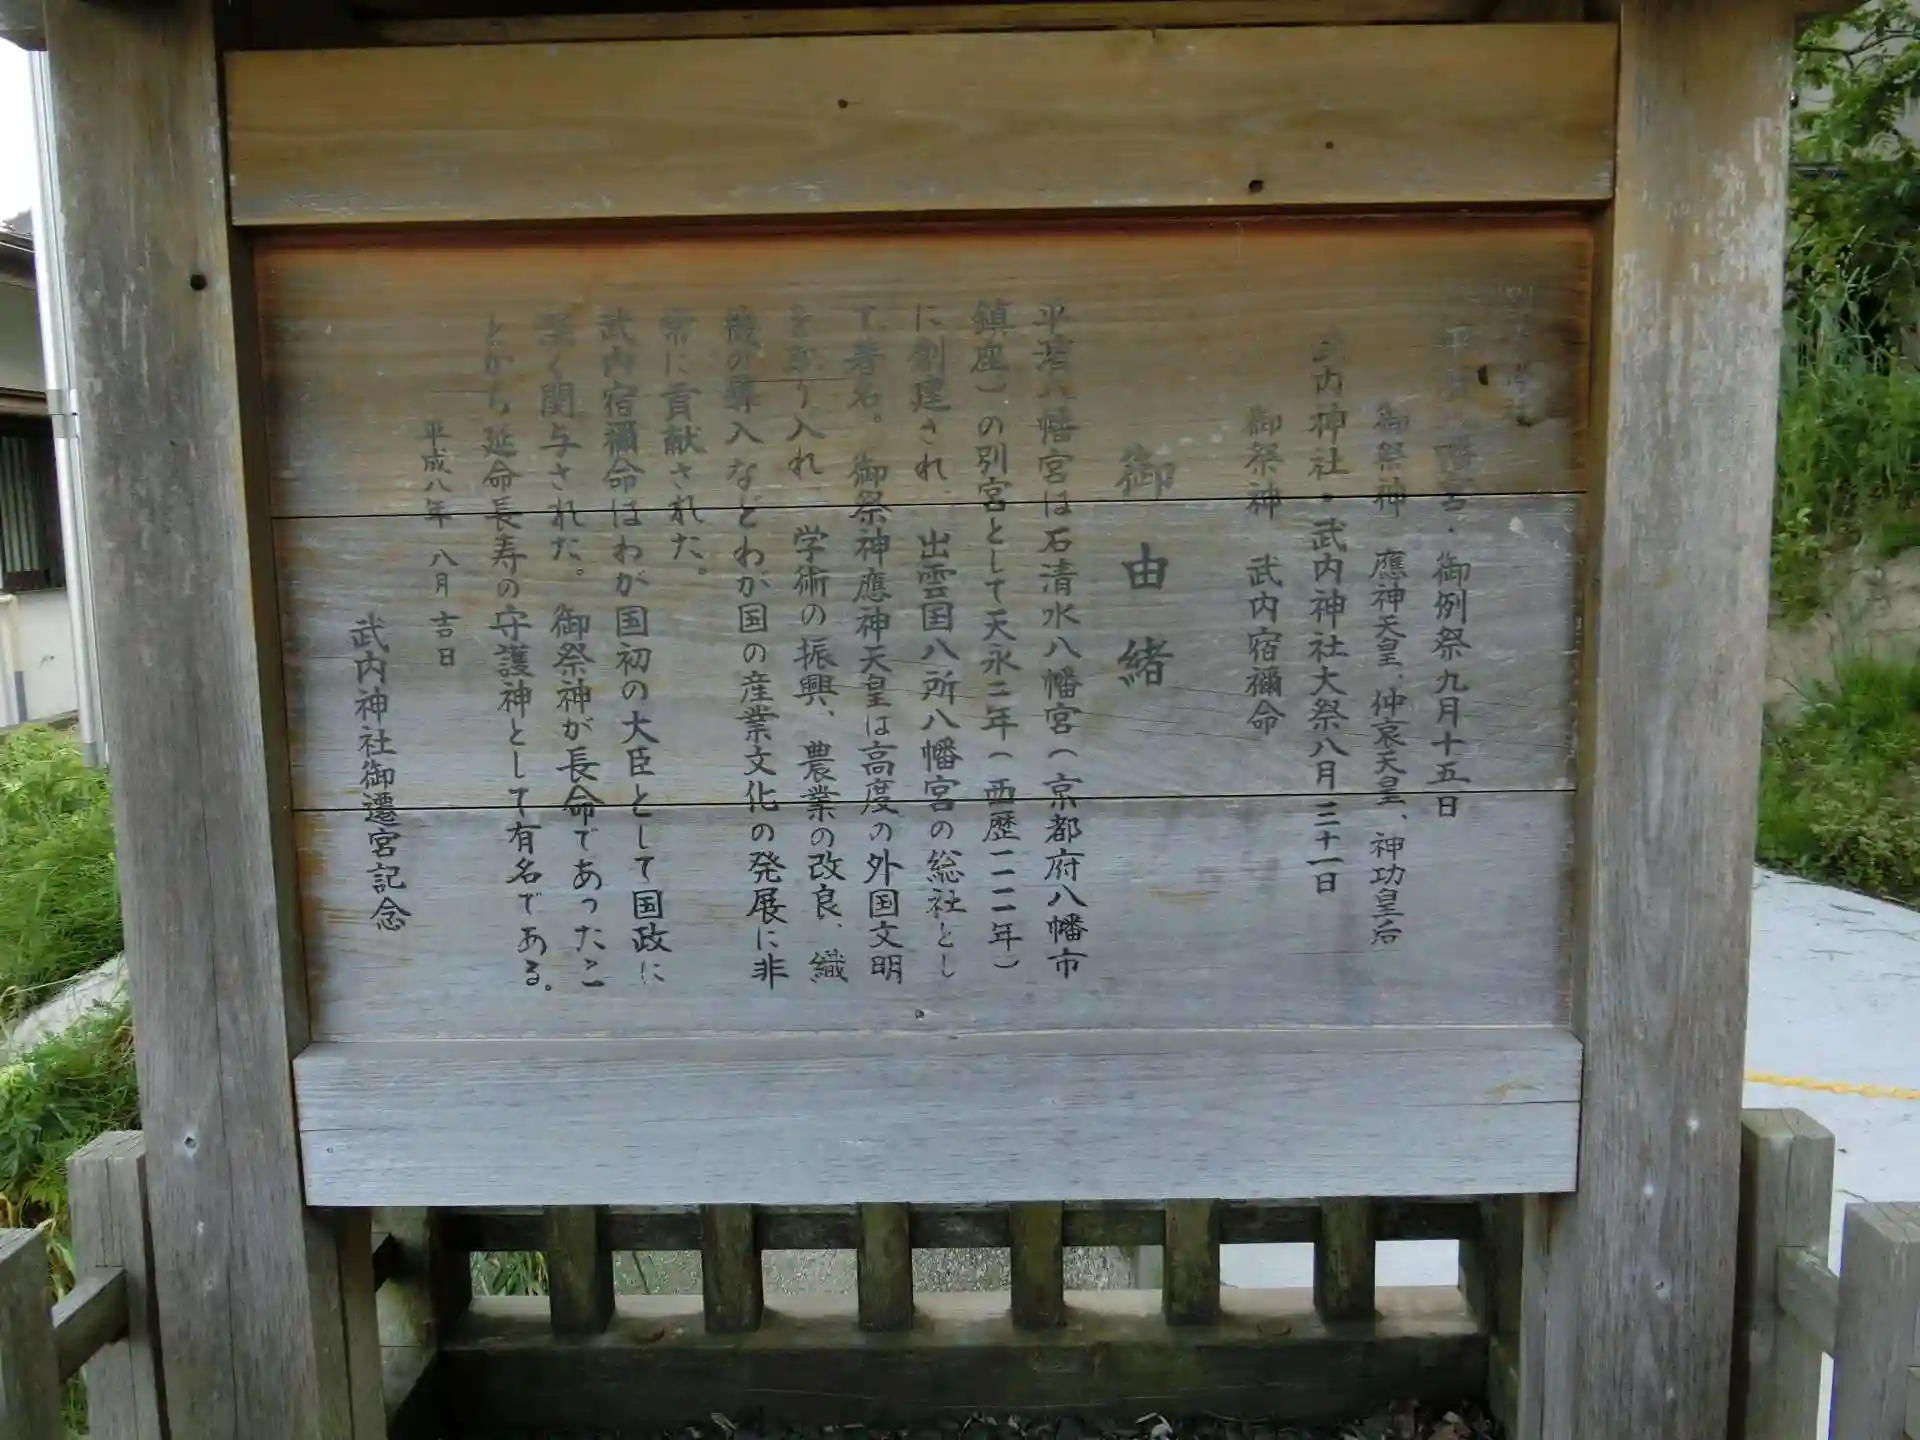 平濱八幡宮・御例祭九月十五日
御祭神 應神天皇、仲哀天皇、神功皇后
武内神社・武内神社大祭八月三十一日
御祭神 武内宿禰命
御由緒
平濱八幡宮は石清水八幡宮(京都府八幡市
鎮座)の別宮として天永二年(西歴一一一一年)
に創建され、出雲国八所八幡宮の総社とし
て著名。御祭神應神天皇は高度の外国文明
を取り入れ、学術の振興、農業の改良、織
機の導入などわが国の産業文化の発展に非
常に貢献された。
武内宿禰命はわが国初の大臣として国政に
深く関与された。御祭神が長命であったこ
とから延命長寿の守護神として有名である。
平成八年八月吉日
武内神社御遷宮記念